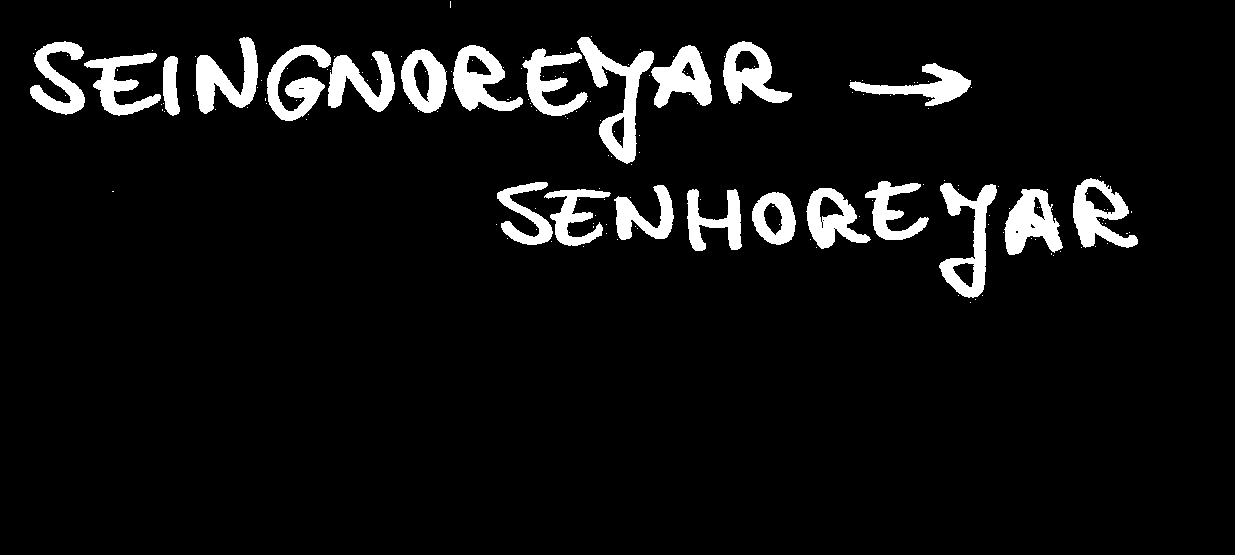 SEINGNOREYAR →
SENHOREYAR